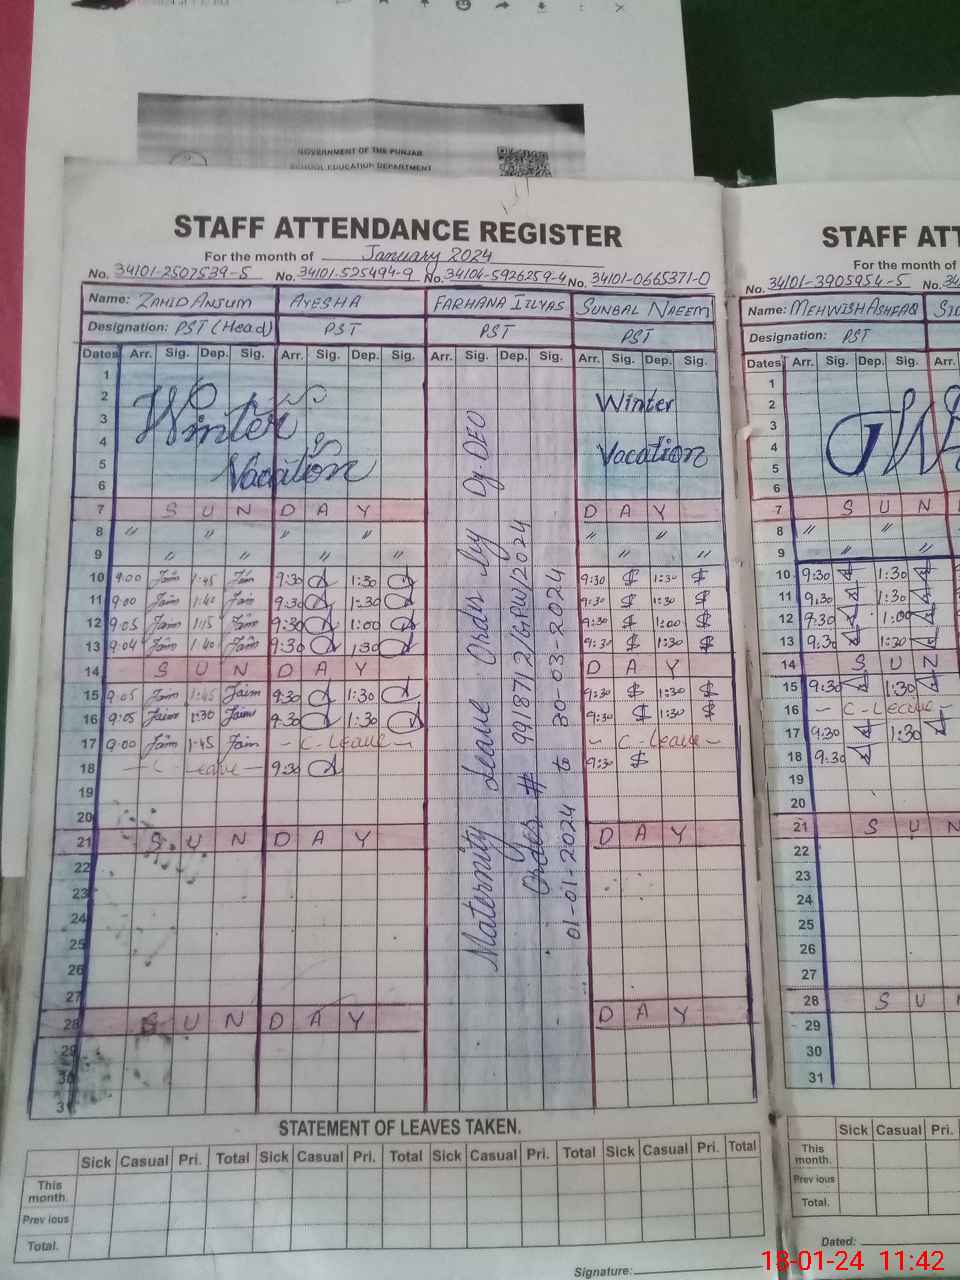 GOVERNMENT OF THE PUNJAB
SCHOOL EDUCATION DEPARTMENT
STAFF ATTENDANCE REGISTER
For the month of January 2024
No. 34101-2507539-5 No. 34101-525494-9 No. 34104-5926259-4 No. 34101-0665371-0
Name: ZAHID ANJUM AYESHA FARHANA ILLYAS SUNBAL NAEEM
Designation: PST (Head) PST PST PST
Dates Arr. Sig. Dep. Sig. Arr. Sig. Dep. Sig. Arr. Sig. Dep. Sig. Arr. Sig. Dep. Sig.
1
2
3
4
5
6
Winter Vacation
Winter Vacation
7 SUN DAY DAY
8 " " " " " "
9 " " " " " "
10 9:00 1:45 9:30 1:30 9:30 1:30
11 9:00 1:40 9:30 1:30 9:30 1:30
12 9:05 1:15 9:30 1:00 9:30 1:00
13 9:04 1:40 9:30 1:30 9:30 1:30
14 SUN DAY DAY
15 9:05 1:45 9:30 1:30 9:30 1:30
16 9:05 1:30 9:30 1:30 9:30 1:30
17 9:00 1:45 - C-Leave - - C-Leave -
18 - C-Leave - 9:30 9:30
19
20
21 SUN DAY DAY
22
23
24
25
26
27
28 SUN DAY DAY
29
30
31
Maternity Leave Order by Dy. DEO
Order # 99187/2/G(W)/2024
01-01-2024 to 30-03-2024
STATEMENT OF LEAVES TAKEN.
Sick Casual Pri. Total Sick Casual Pri. Total Sick Casual Pri. Total Sick Casual Pri. Total
This month.
Previous
Total.
Signature:
STAFF ATT
For the month of
No. 34101-3905954-5 No.
Name: MEHWISH ASHFAQ
Designation: PST
Dates Arr. Sig. Dep. Sig. Arr.
1
2
3
4
5
6
7 SUN
8 " "
9 " "
10 9:30 1:30
11 9:30 1:30
12 9:30 1:00
13 9:30 1:30
14 SUN
15 9:30 1:30
16 - C-Leave -
17 9:30 1:30
18 9:30
19
20
21 SUN
22
23
24
25
26
27
28 SU
29
30
31
Sick Casual Pri.
This month.
Previous
Total.
Dated:
18-01-24 11:42